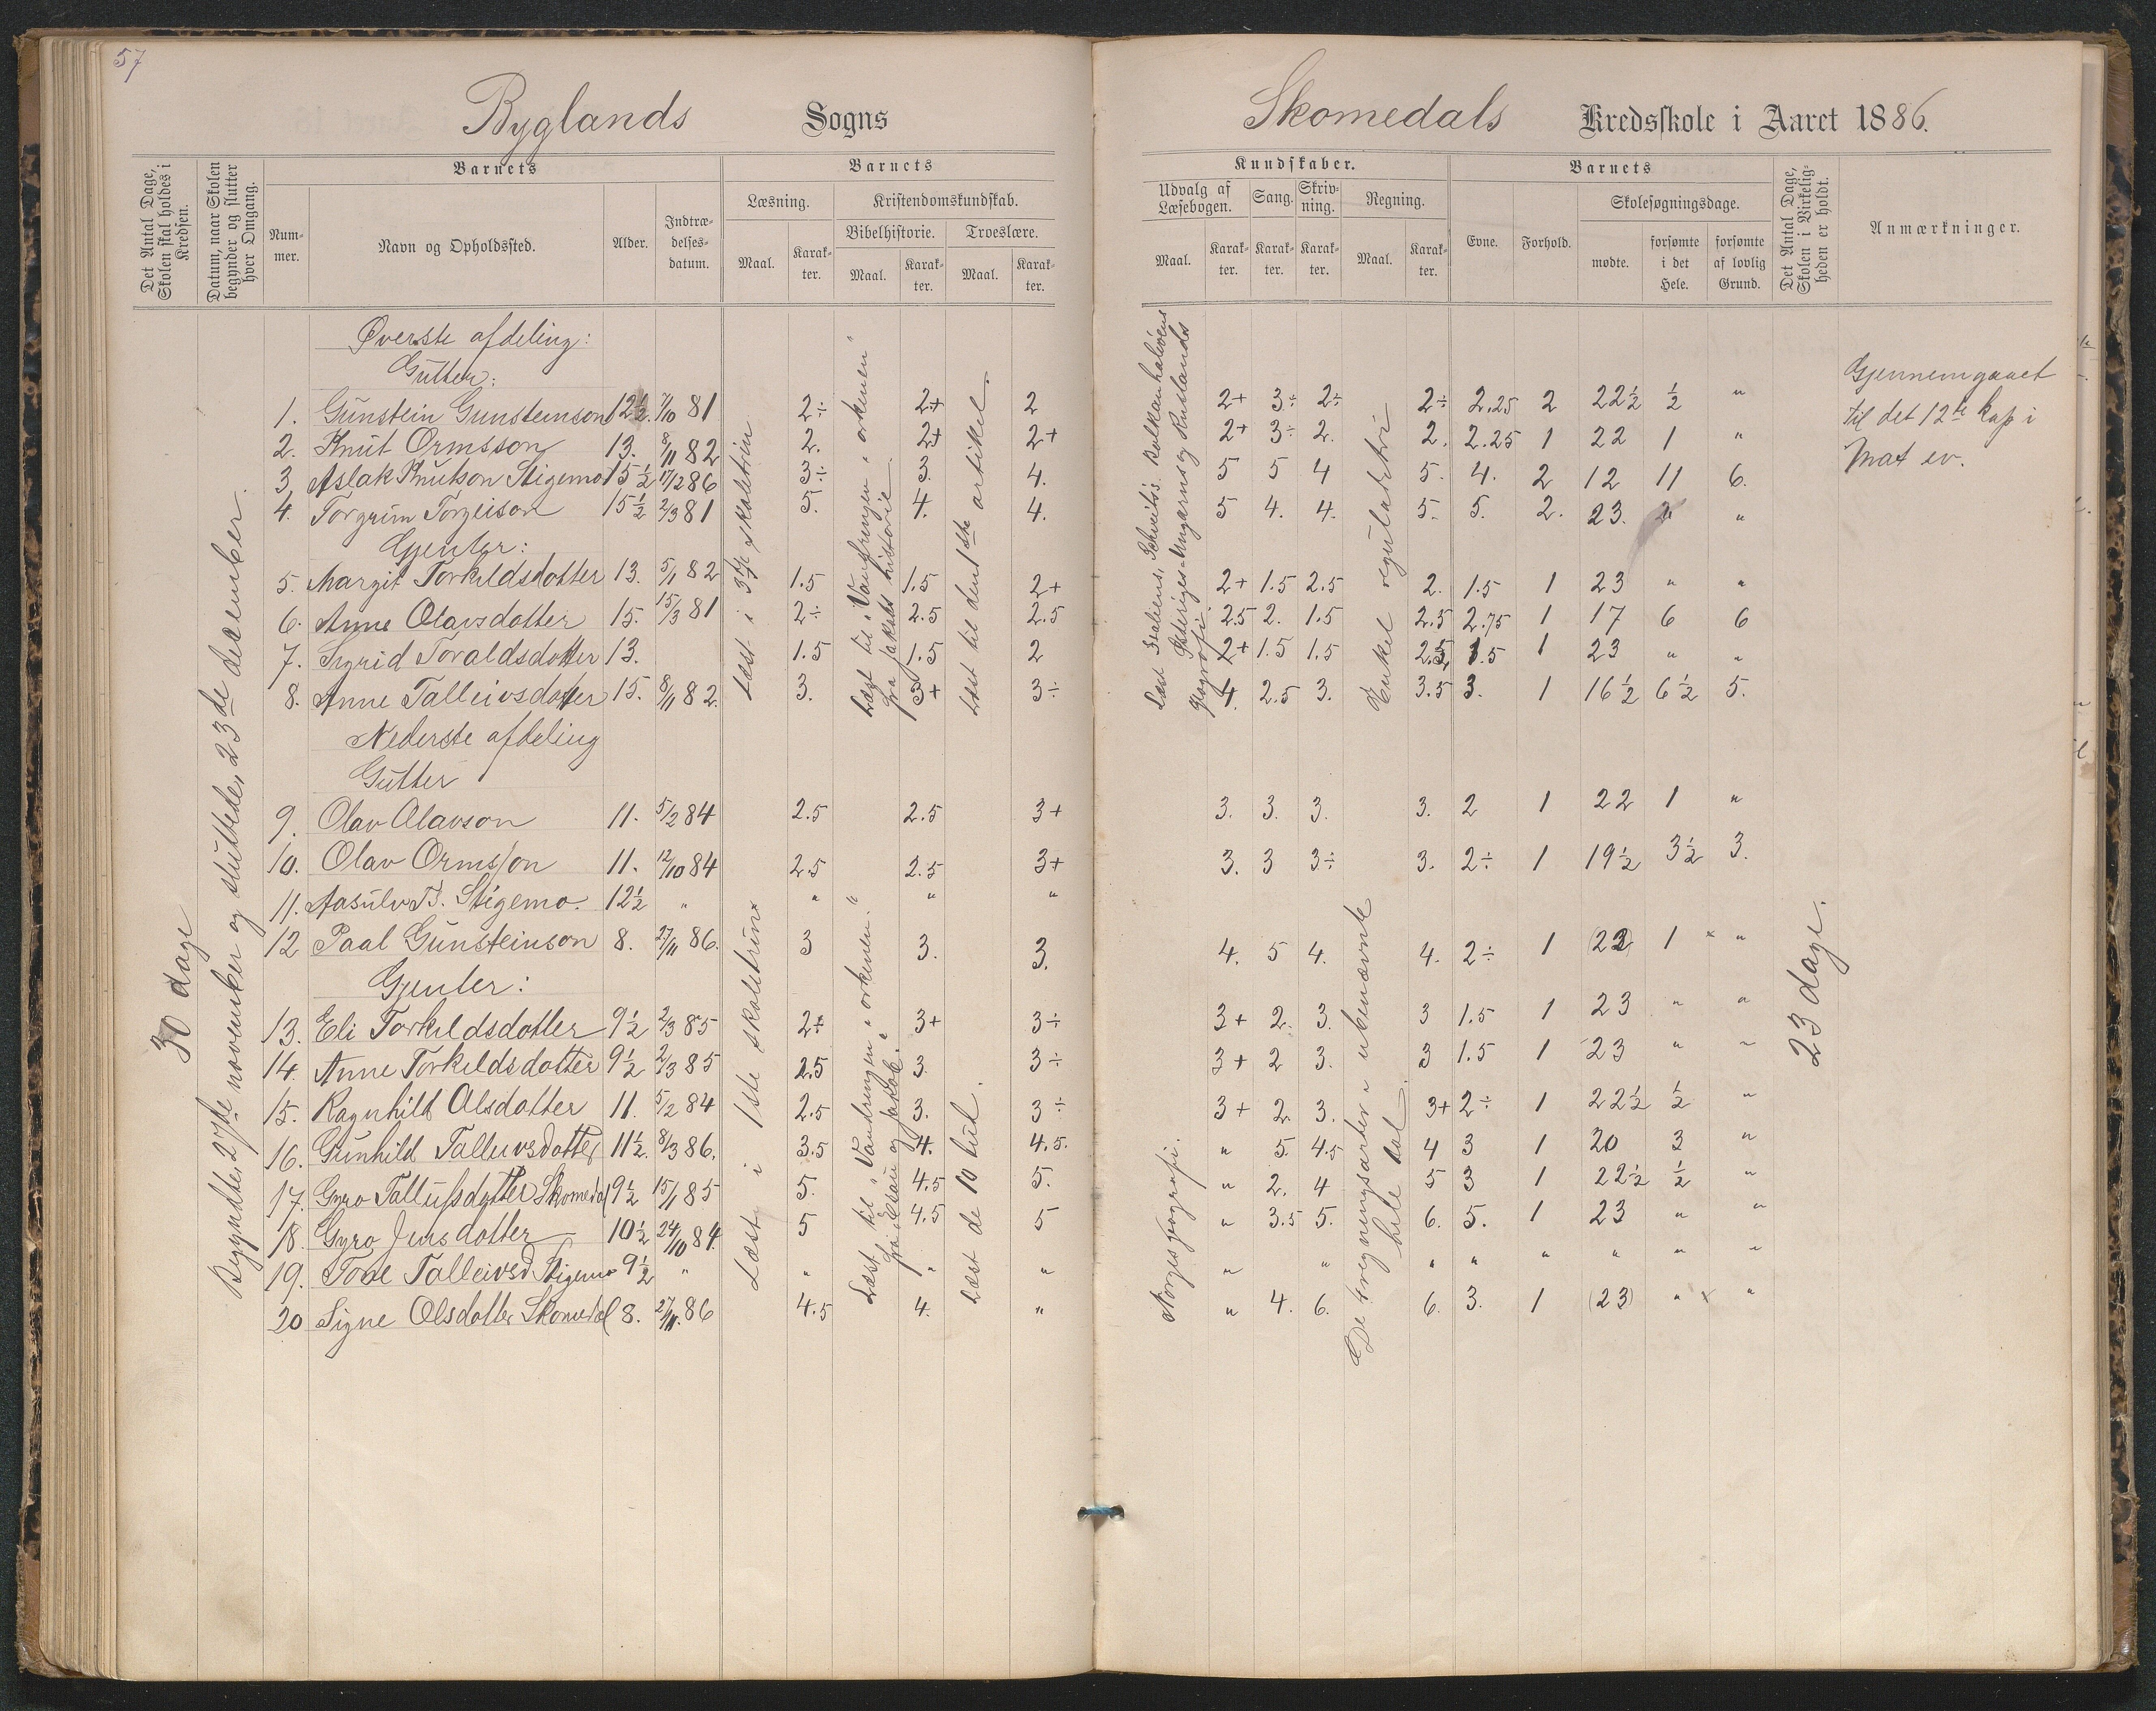 57
Byglands Sogns
Skomedals Kredsskole i Aaret 1886.
Det Antal Dage, Skolen skal holdes i Kredsen.
Datum, naar Skolen begynder og slutter hver Omgang.
Barnets
Num-mer.
Navn og Opholdssted.
Alder.
Indtræ-delses-datum.
Barnets
Læsning.
Maal.
Karak-ter.
Kristendomskundskab.
Bibelhistorie.
Maal.
Karak-ter.
Troeslære.
Maal.
Karak-ter.
Kundskaber.
Udvalg af Læsebogen.
Maal.
Karak-ter.
Sang.
Karak-ter.
Skriv-ning.
Karak-ter.
Regning.
Maal.
Karak-ter.
Barnets
Evne.
Forhold.
Skolesøgningsdage.
mødte.
forsømte i det Hele.
forsømte af lovlig Grund.
Det Antal Dage, Skolen i Virkelig-heden er holdt.
Anmærkninger.
30 dage
Begyndte 27de november og sluttede 23de december.
Øverste afdeling:
Gutter:
1. Gunstein Gunsteinson 12½. 7/10 81 2÷ 2+ 2 2+ 3÷ 2÷ 2÷ 2.25 2 22½ ½ "
2. Knut Ormsson 13. 8/11 82 2. 2+ 2+ 2+ 3÷ 2. 2. 2.25 1 22 1 "
3 Aslak Knutson Stigemo 15½ 17/2 86 3÷ 3. 4. 5 5 4 5. 4. 2 12 11 6.
4. Torgrim Torgeison 15½ 2/3 81 5. 4. 4. 5 4. 4. 5. 5. 2. 23. " "
Gjenter:
5. Margit Torkildsdotter 13. 5/1 82 1.5 1.5 2+ 2+ 1.5 2.5 2. 1.5 1 23 " "
6. Anne Olavsdotter 15. 15/3 81 2÷ 2.5 2.5 2.5 2. 1.5 2.5 2.75 1 17 6 6
7. Sigrid Toraldsdotter 13. 1.5 1.5 2 2+ 1.5 1.5 2.5 1.5 1 23 " "
8. Anne Talleivsdotter 15. 8/11 82. 3. 3+ 3÷ 4. 2.5 3. 3.5 3. 1 16½ 6½ 5.
Læst i 3dje skoletrin
Læst til "Vandringen i ørkenen" fra Jakobs historie
Læst til den 1ste artikel.
Læst Italiens, Schveits's, Balkanhalvøens Østeriges-Ungarns og Ruslands geografi.
Enkel reguladetri
Gjennemgaaet
til det 12te kap i
Mat ev.
Nederste afdeling
Gutter
9. Olav Olavson 11. 5/2 84 2.5 2.5 3+ 3. 3. 3. 3. 2 1 22 1 "
10. Olav Ormsson 11. 12/10 84 2.5 2.5 3+ 3. 3 3÷ 3. 2÷ 1 19½ 3½ 3.
11. Aasulv T. Stigemo. 12½ " " " "
12 Paal Gunsteinson 8. 27/11 86. 3 3. 3. 4. 5 4. 4. 2÷ 1 (22) 1 × "
Gjenter:
13. Eli Torkildsdotter 9½ 2/3 85 2÷ 3+ 3÷ 3+ 2. 3. 3 1.5 1 23 " "
14. Anne Torkildsdotter 9½ 2/3 85 2.5 3. 3÷ 3+ 2 3. 3 1.5 1 23 " "
15. Ragnhild Olsdotter 11. 5/2 84 2.5 3. 3÷ 3+ 2. 3. 3+ 2÷ 1 22½ ½ "
16. Gunhild Talleivsdotter 11½. 8/3 86. 3.5 4. 4.5. " 5. 4.5 4 3 1 20 3 "
17. Gyro Tallufsdotter Skomedal 9½ 15/1 85 5. 4.5 5. " 2. 4 5 3 1 22½ ½ "
18. Gyro Jensdotter 10½ 24/10 84. 5 4.5 5 " 3.5 5. 6. 5. 1 23 " "
19. Tone Talleivsd Stigemo 9½ " " " " " " " " " " " "
20 Signe Olsdotter Skomedal 8. 27/11 86 4.5 4. " " 4. 6. 6. 3. 1 (23) " × "
Læst i 1ste skoletrin
Læst til "Vandringen i ørkenen." fra Esau og Jakob.
Læst de 10 bud.
Norges geografi.
De 4 regningsarter i ubenævnte hele tal.
23 dage.